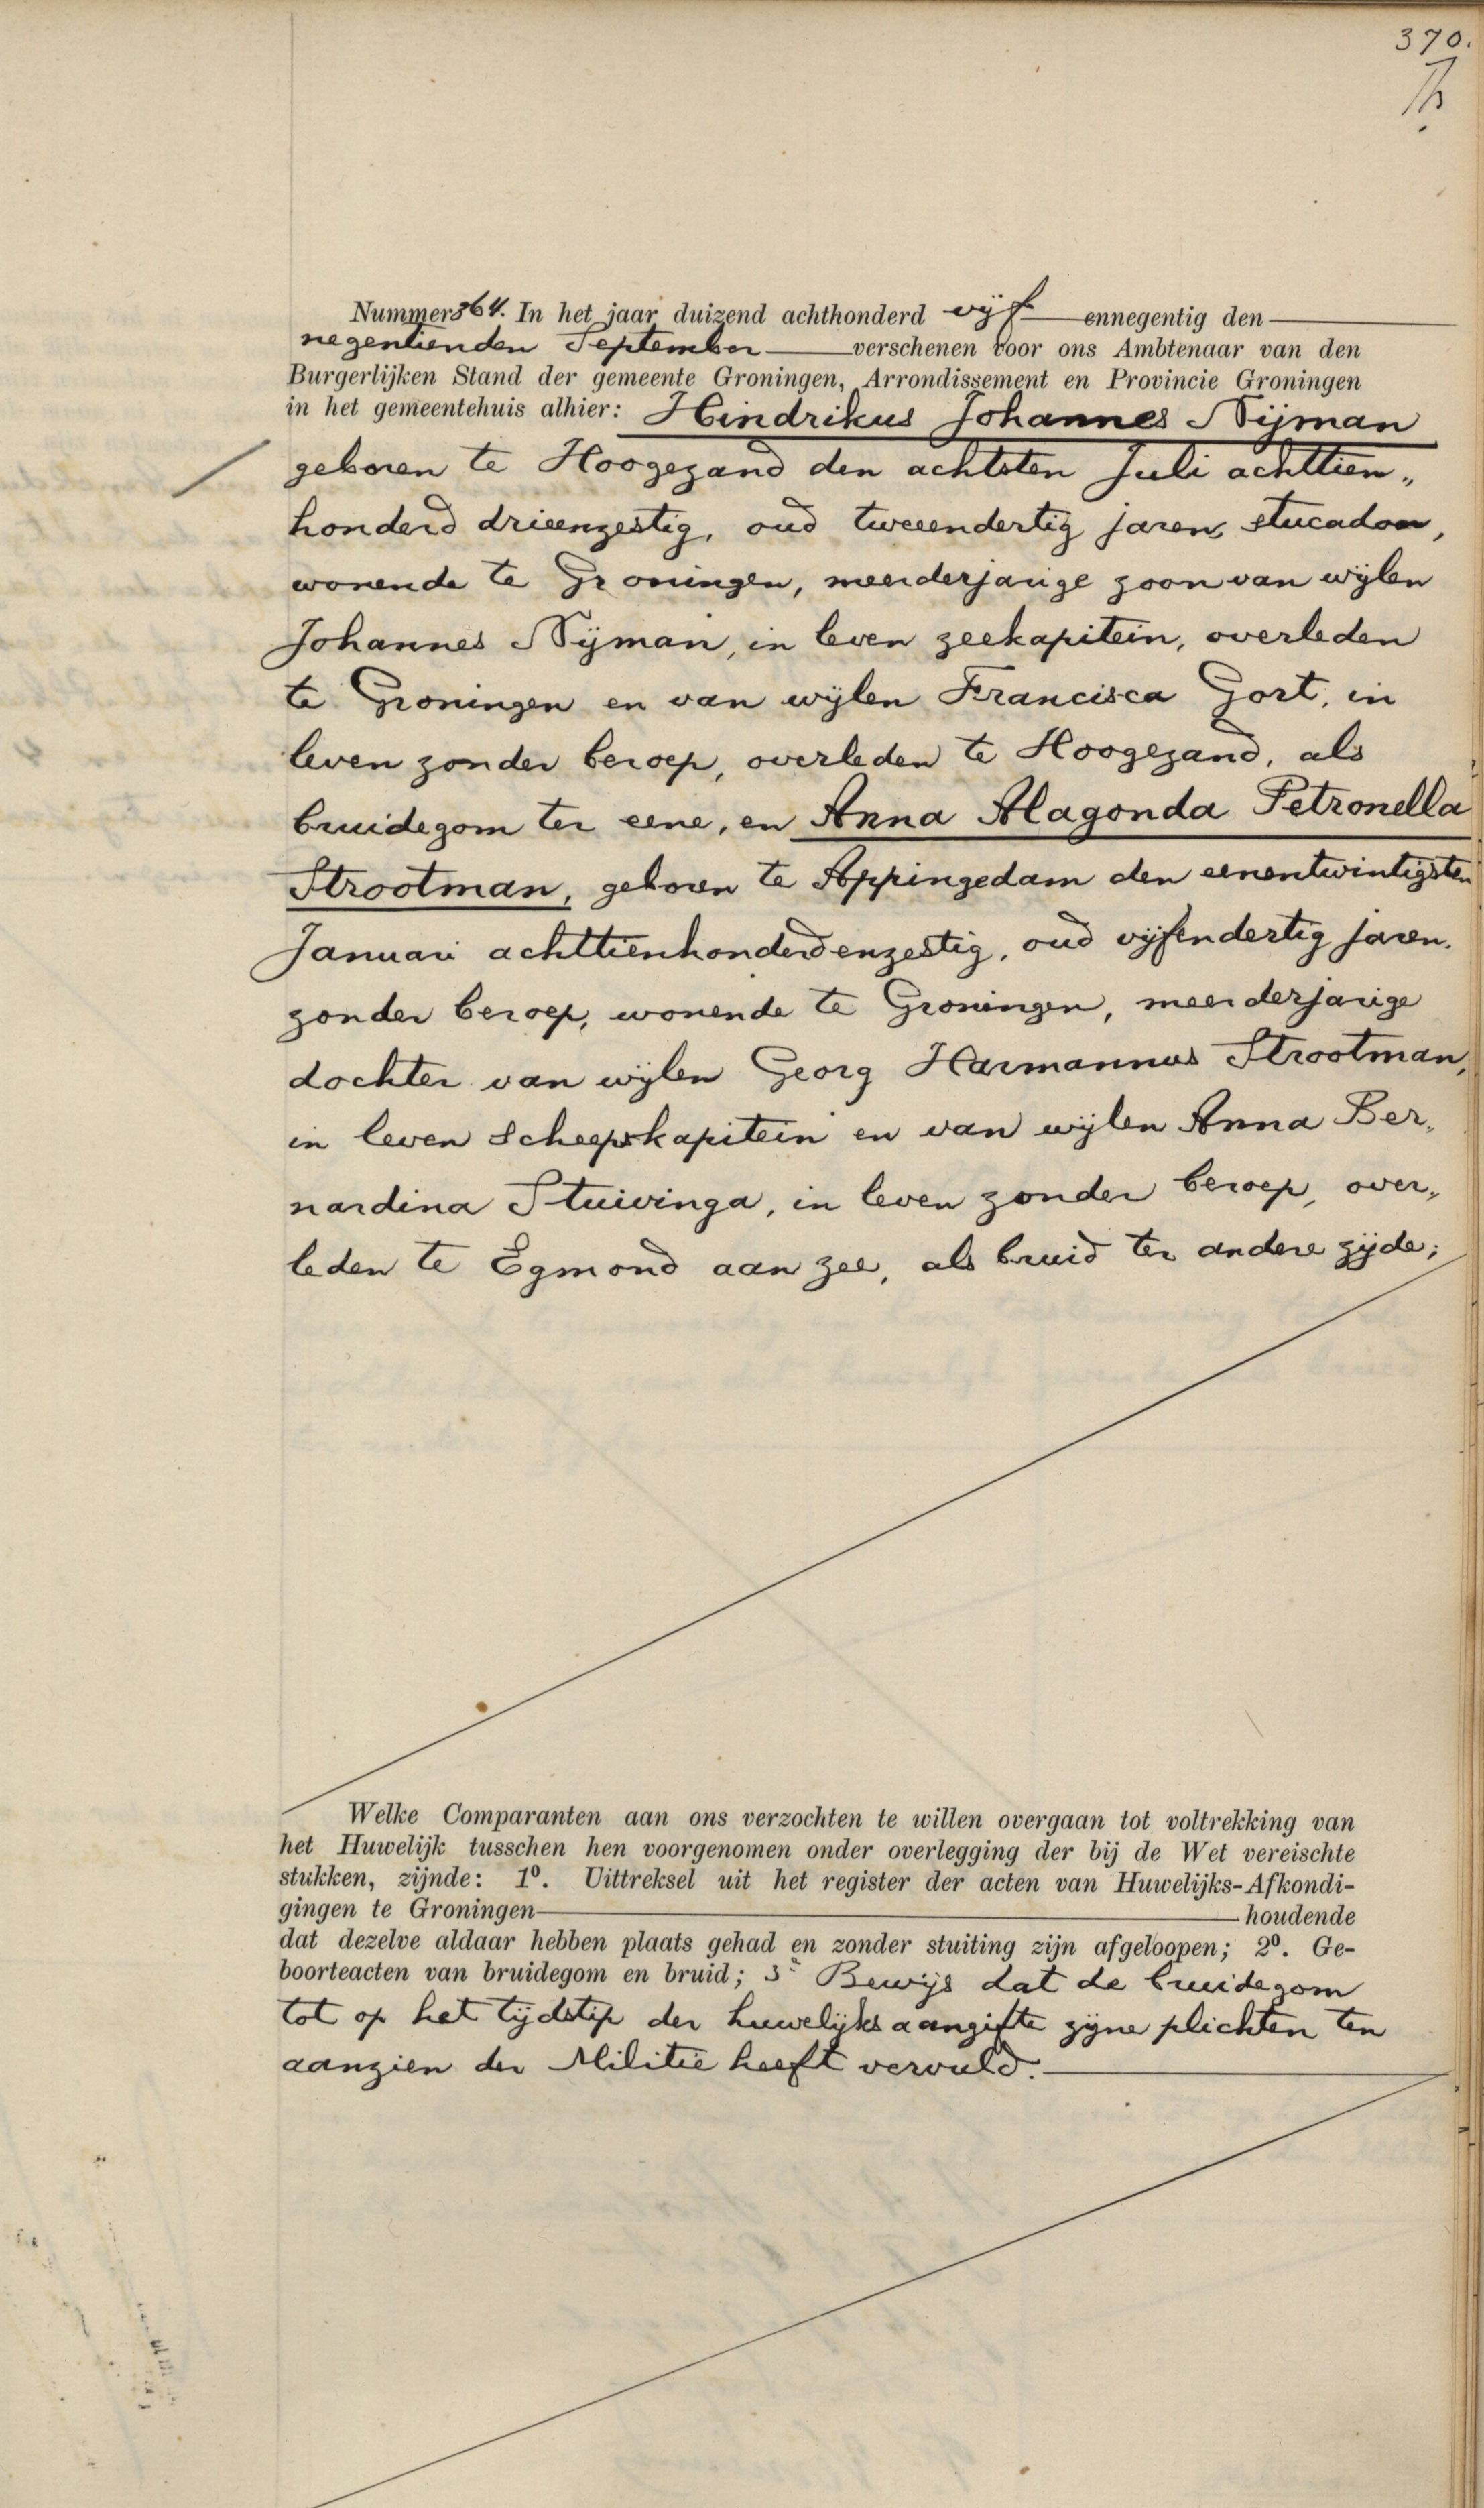 370.
Nummer 364. In het jaar duizend achthonderd vijf ennegentig den
negentienden September verschenen voor ons Ambtenaar van den
Burgerlijken Stand der gemeente Groningen, Arrondissement en Provincie Groningen
in het gemeentehuis alhier: Hindrikus Johannes Nijman
geboren te Hoogezand den achtsten Juli achttien„
honderd drieenzestig, oud tweeendertig jaren, stucadoor,
wonende te Groningen, meerderjarige zoon van wijlen
Johannes Nijman, in leven zeekapitein, overleden
te Groningen en van wijlen Francisca Gort, in
leven zonder beroep, overleden te Hoogezand, als
bruidegom ter eene, en Anna Alagonda Petronella
Strootman, geboren te Appingedam den eenentwintigsten
Januari achttienhonderdenzestig, oud vijfendertig jaren.
zonder beroep, wonende te Groningen, meerderjarige
dochter van wijlen Georg Harmannus Strootman,
in leven scheepskapitein en van wijlen Anna Ber„
nardina Stuivinga, in leven zonder beroep, over„
leden te Egmond aan zee, als bruid ter andere zijde;
Welke Comparanten aan ons verzochten te willen overgaan tot voltrekking van
het Huwelijk tusschen hen voorgenomen onder overlegging der bij de Wet vereischte
stukken, zijnde: 1º. Uittreksel uit het register der acten van Huwelijks-Afkondi-
gingen te Groningen houdende
dat dezelve aldaar hebben plaats gehad en zonder stuiting zijn afgeloopen; 2º. Ge-
boorteacten van bruidegom en bruid; 3º Bewijs dat de bruidegom
tot op het tijdstip der huwelijksaangifte zijne plichten ten
aanzien der Militie heeft vervuld.